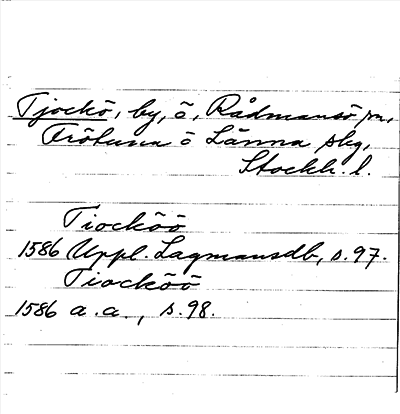 Tjockö, by, ö, Rådmansö sn,
Frötuna o Länna skg,
Stockh. l.
Tiocköö
1586 Uppl. Lagmansdb, s. 97.
Tiocköö
1586 a. a., s. 98.